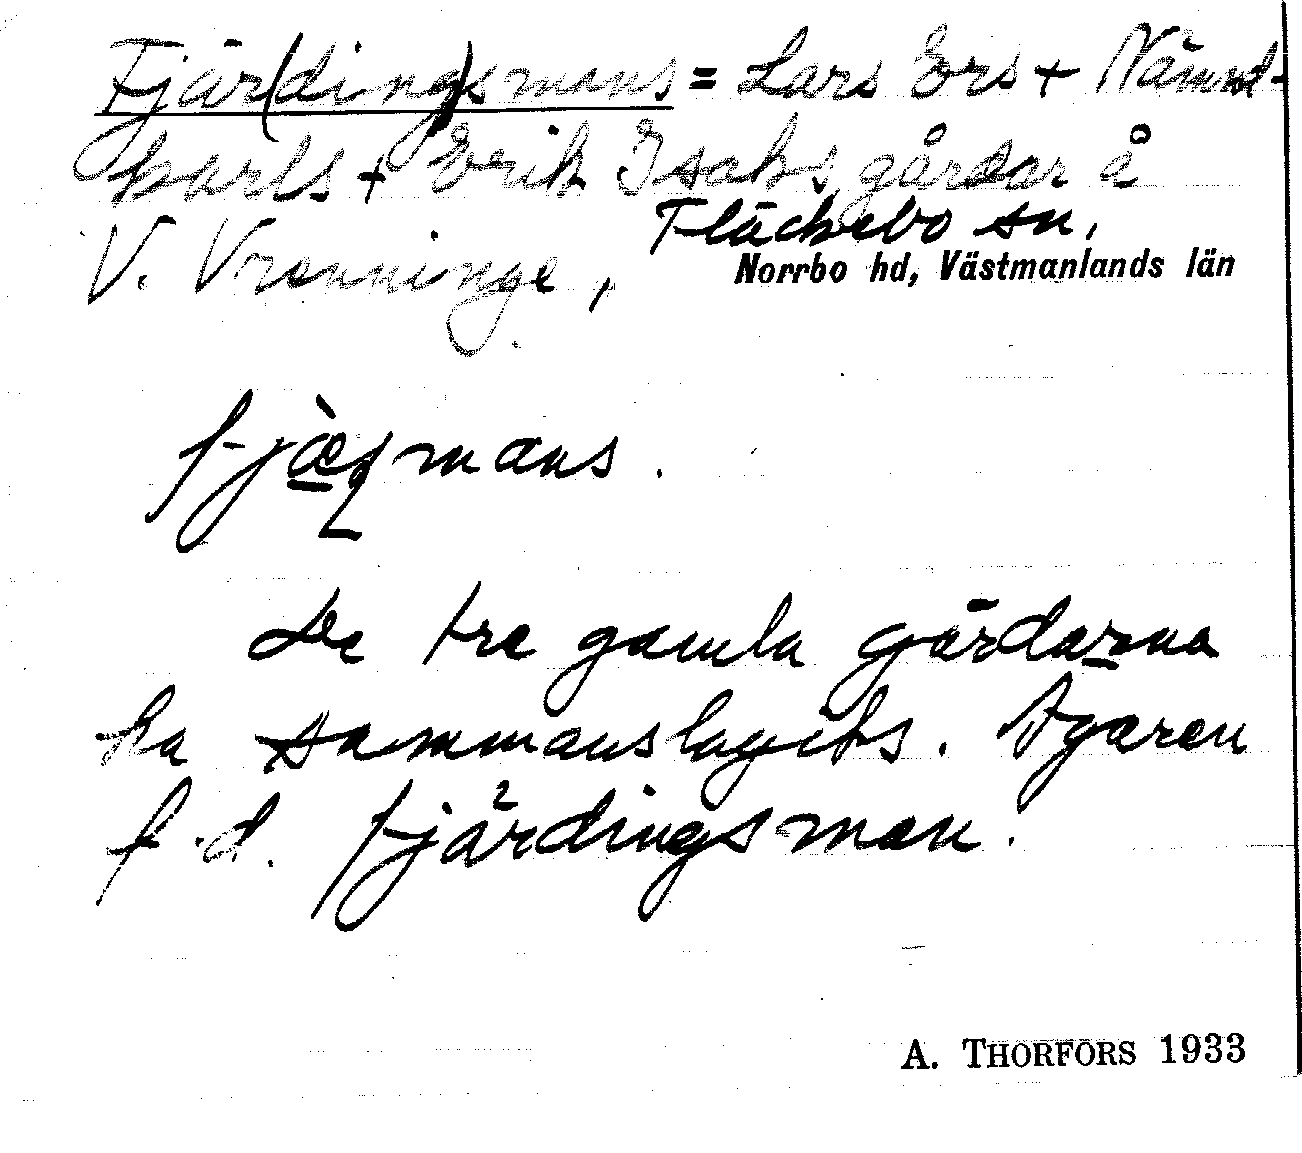 Fjär(ding)smans = Lars Ers + Nämnd-
karls + Erik Isaks gårdar å
V. Vrenninge, Fläckebo sn,
Norrbo hd, Västmanlands län
mans.
De tre gamla gårdarna
ha sammanslagits. Ägaren
f.d. fjärdingsman.
A. THORFORS 1933